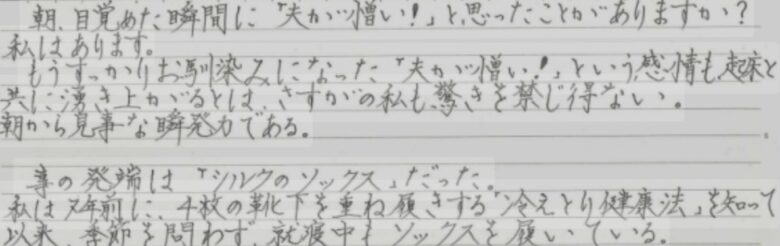 朝、目覚めた瞬間に「夫が憎い!」と思ったことがありますか?
私はあります。
もうすっかりお馴染みになった「夫が憎い!」という感情も起床と
共に湧き上がるとは、さすがの私も驚きを禁じ得ない。
朝から見事な瞬発力である。
事の発端は「シルクのソックス」だった。
私は 年前に、4枚の靴下を重ね履きする「冷えとり健康法」を知って
以来、季節を問わず、就寝中もソックスを履いている。